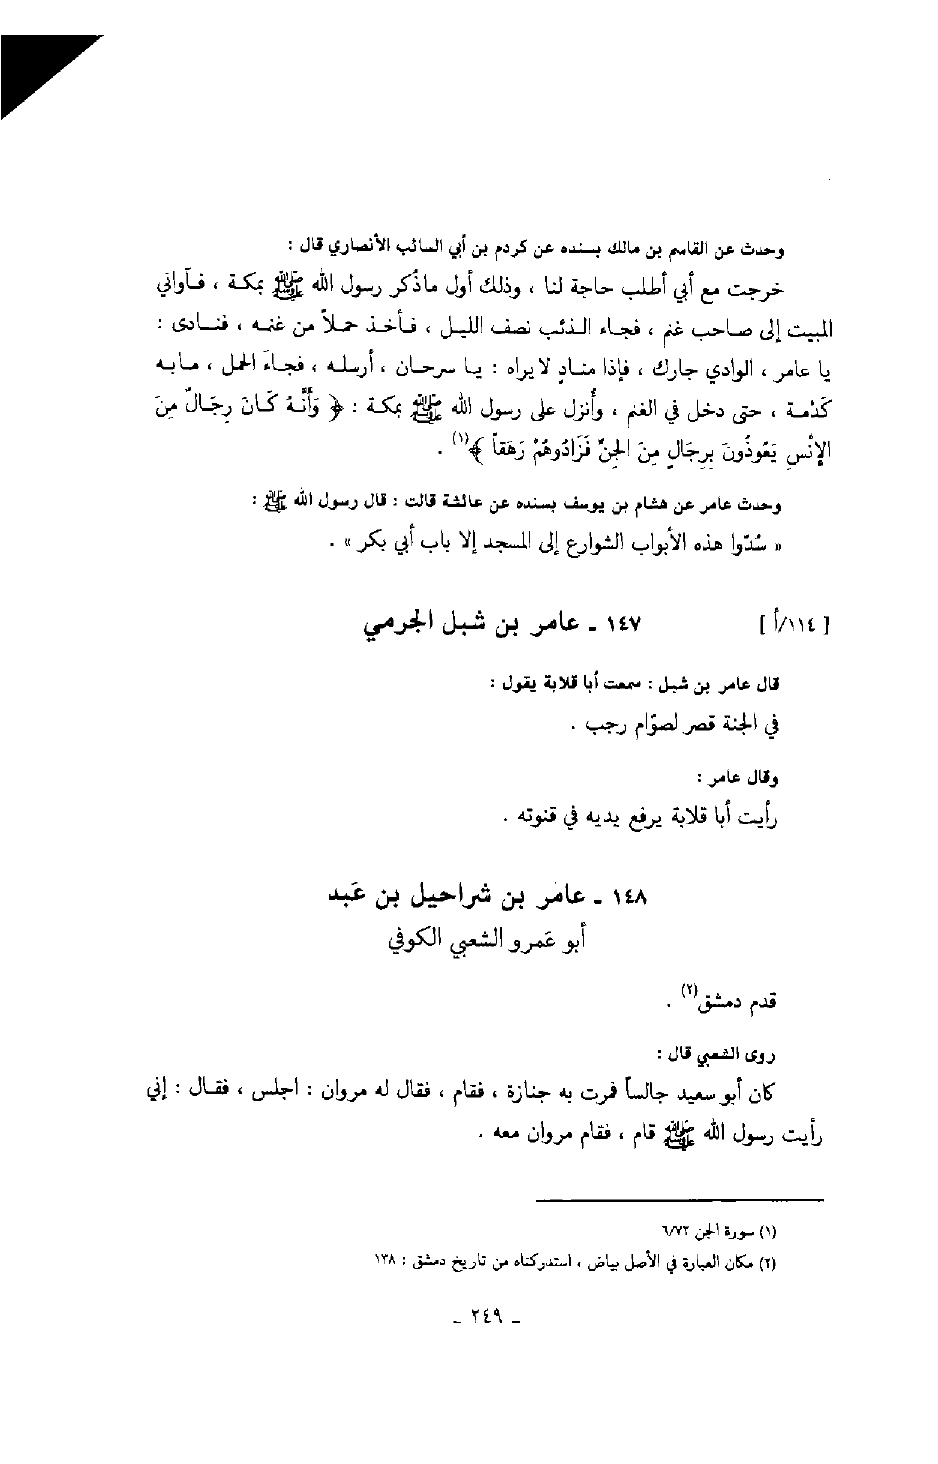 وحدث عن القاسم بن مالك بسنده عن كردم بن أبي السائب الأنصاري قال :
خرجت مع أبي أطلب حاجة لنا ، وذلك أول ماذُكر رسول الله ﷺ بمكة ، فـآواني
المبيت إلى صـاحب غنم ، فجـاء الـذئب نصف الليـل ، فـأخـذ حملاً من غنمـه ، فنـادى :
يا عامر ، الوادي جارك ، فإذا منـادٍ لا يراه : يـا سرحـان ، أرسلـه ، فجـاءَ الحمل ، مـابـه
كَدْمـة ، حتى دخل في الغنم ، وأُنزل على رسول الله ﷺ بمكة : ﴿ وَأَنَّـهُ كَـانَ رِجَـالٌ مِنَ
الإِنْسِ يَعُوذُونَ بِرِجَالٍ مِنَ الجِنِّ فَزَادُوهُمْ رَهَقاً ﴾(١) .
وحدث عامر عن هشام بن يوسف بسنده عن عائشة قالت : قال رسول الله ﷺ :
« سُدّوا هذه الأبواب الشوارع إلى المسجد إلا باب أبي بكر » .
[ ١١٤/أ ] ١٤٧ ـ عامر بن شبل الجرمي
قال عامر بن شبل : سمعت أبا قلابة يقول :
في الجنة قصر لصوّام رجب .
وقال عامر :
رأيت أبا قلابة يرفع يديه في قنوته .
١٤٨ ـ عامر بن شراحيل بن عَبد
أبو عَمرو الشعبي الكوفي
قدم دمشق(٢) .
روى الشعبي قال :
كان أبو سعيد جالساً فمرت به جنازة ، فقام ، فقال له مروان : اجلس ، فقـال : إني
رأيت رسول الله ﷺ قام ، فقام مروان معه .
(١) سورة الجن ٦/٧٢
(٢) مكان العبارة في الأصل بياض ، استدركناه من تاريخ دمشق : ١٣٨
ـ ٢٤٩ ـ